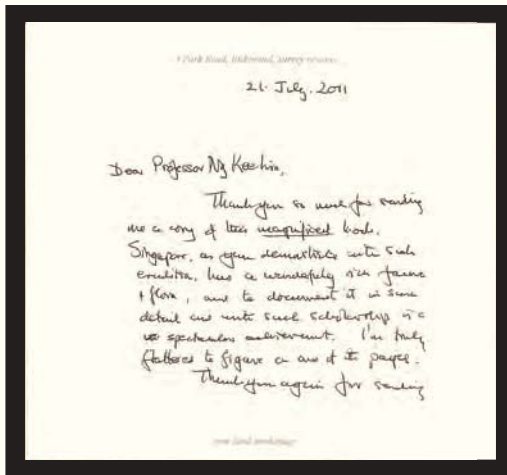 Park Road, Richmond, Surrey
21. July. 2011
Dear Professor Ng Kee Lin,
Thank you so much for sending
me a copy of this magnificent book.
Singapore, as you demonstrate with such
erudition, has a wonderfully rich fauna
& flora, and to document it in such
detail and with such scholarship is a
spectacular achievement. I'm truly
flattered to figure on one of its pages.
Thank you again for sending